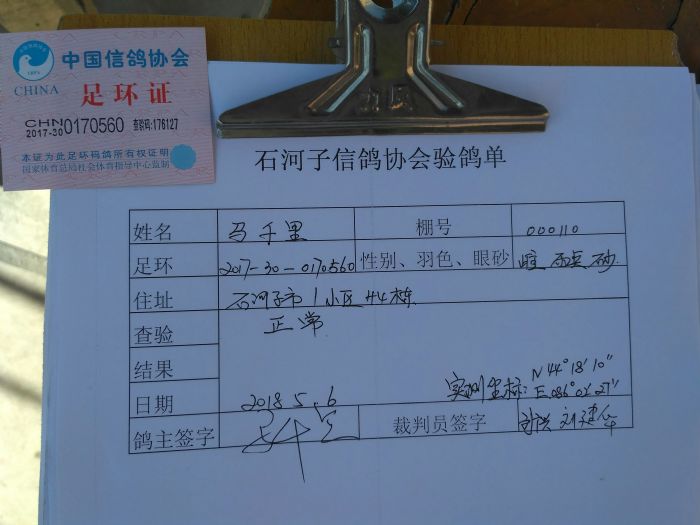 中国信鸽协会
CHINA
足环证
CHN
2017-30 0170560 查验码:176127
本证为此足环码鸽所有权证明
国家体育总局社会体育指导中心监制
石河子信鸽协会验鸽单
姓名 马千里 棚号 000110
足环 2017-30-0170560 性别、羽色、眼砂 砂
住址 石河子市1小区44栋
查验 正常
结果
日期 2018.5.6 实测坐标: N 44°18'10"
E 086°02'27"
鸽主签字 裁判员签字